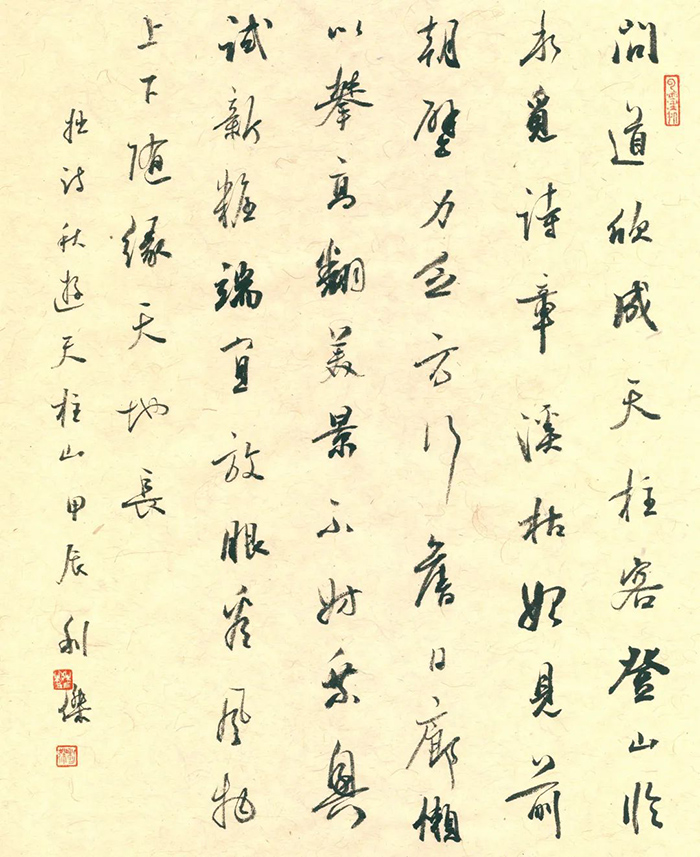 問道欣成天柱客登山临
水覓詩章溪枯始見前
朝壁力乏方行舊日廊懶
以攀高翻美景不妨乘興
試新糚端宜放眼看風物
上下随緣天地長
拙詩秋遊天柱山甲辰利傑